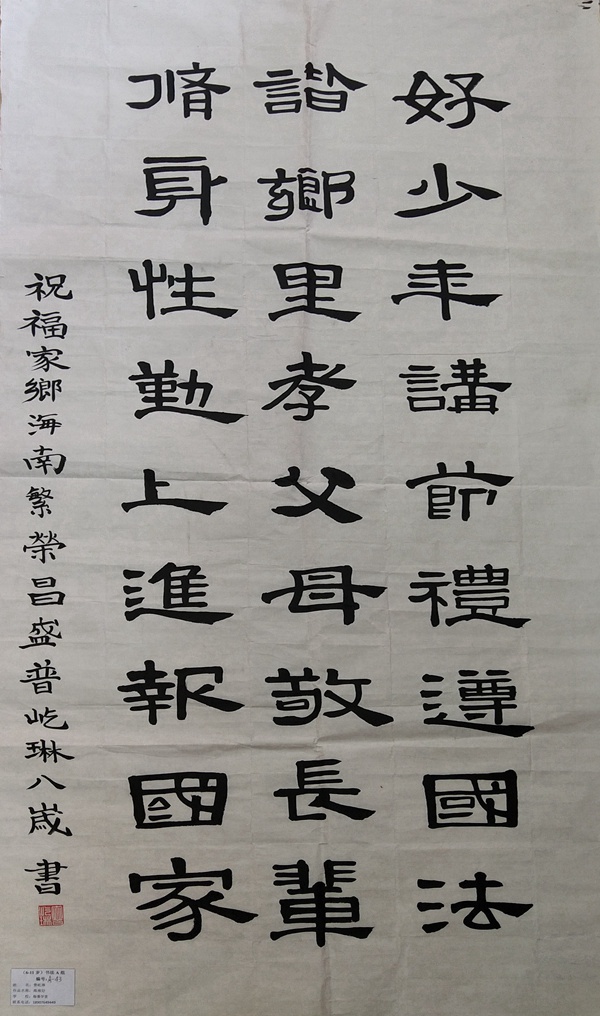 好少年講節禮遵國法
諧鄉里孝父母敬長輩
脩身性勤上進報國家
祝福家鄉海南繁榮昌盛普屹琳八歲書